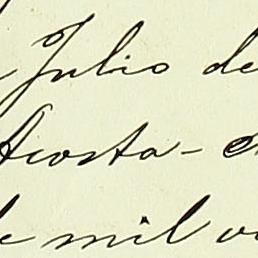 Julio de
Acosta-
de mil